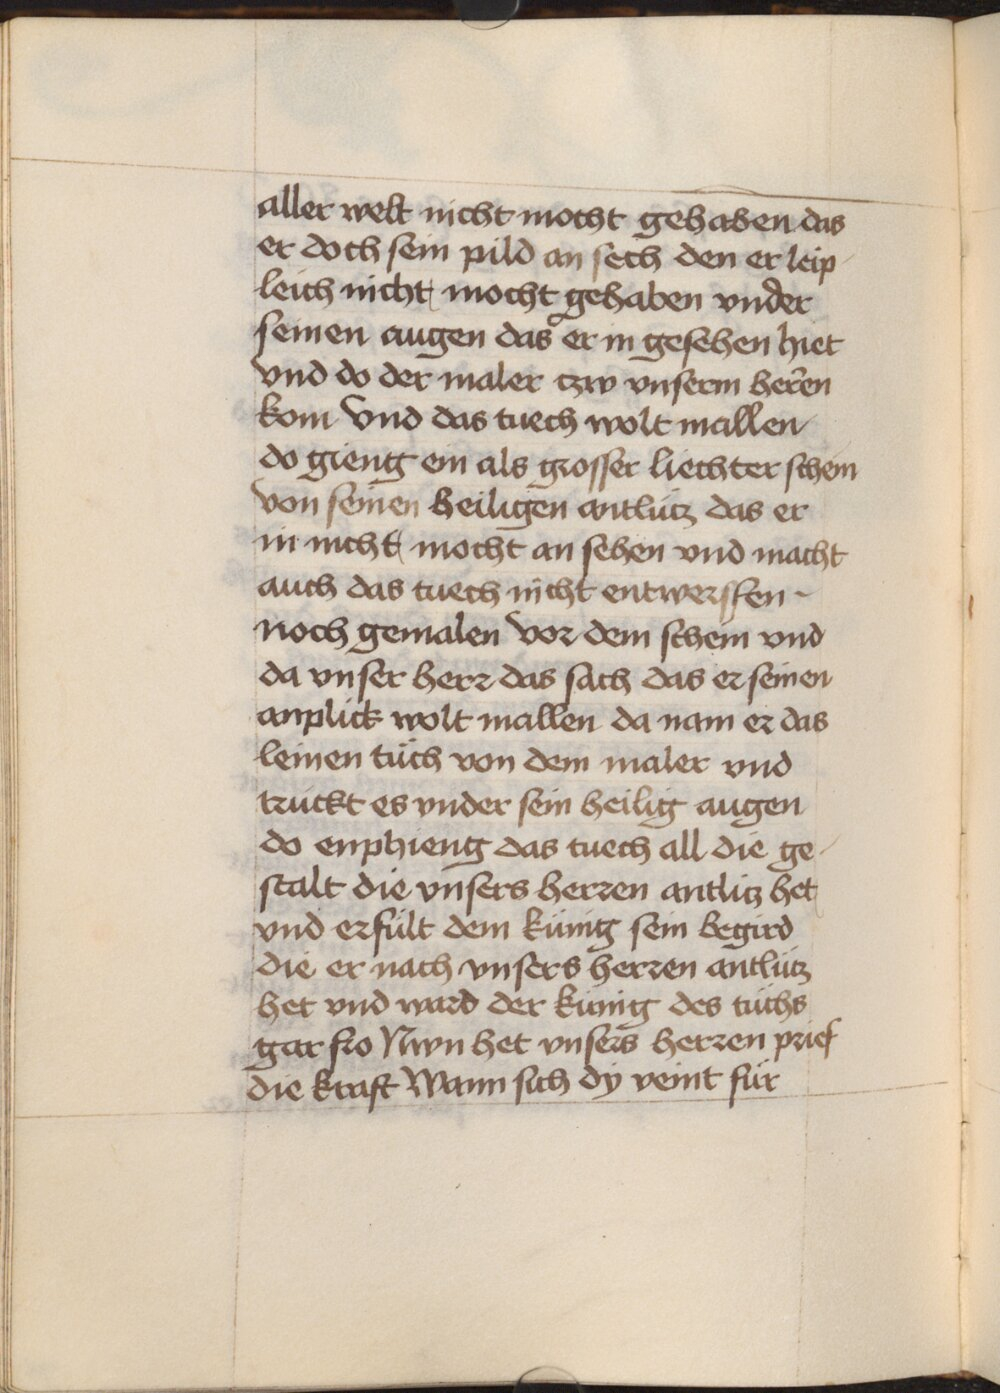 aller welt nicht mocht gehaben das
er doch sein pild an sech den er leip-
leich nicht mocht gehaben vnder
seinen augen das er in gesehen hiet
vnd do der maler tzw vnserm herren
kom Vnd das tuech wolt mallen
do gieng ein als grosser liechter schein
von seinen heiligen antlutz das er
in nicht mocht an sehen vnd macht
auch das tuech nicht entwerffen -
noch gemalen vor dem schein vnd
da vnser herr das sach das er seinen
anplick wolt mallen da nam er das
leinen tüch von dem maler vnd
truckt es vnder sein heilig augen
do enphieng das tuech all die ge-
stalt die vnsers herren antlitz het
vnd erfült dem künig sein begird
die er nach vnsers herren antlütz
het vnd ward der künig des tüchs
gar fro Nwn het vnsers herren prief
die kraft Wann sich dy veint für